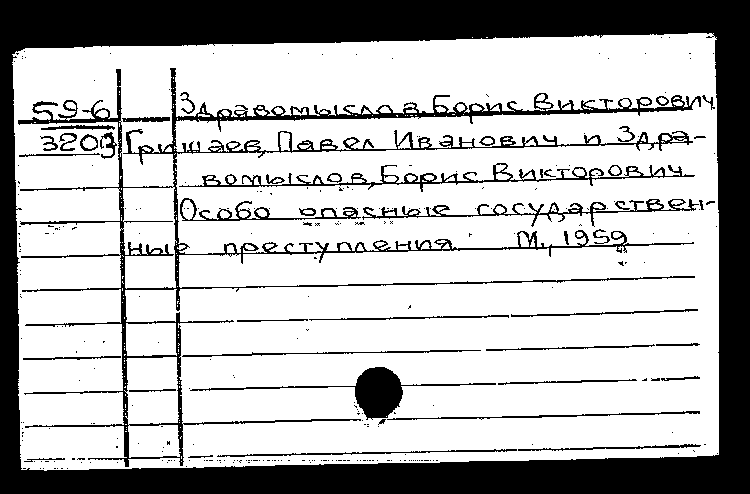 59-6 Здравомыслов, Борис Викторович
3203 Гришаев, Павел Иванович и Здра-
вомыслов, Борис Викторович
Особо опасные государствен-
ные преступления М., 1959